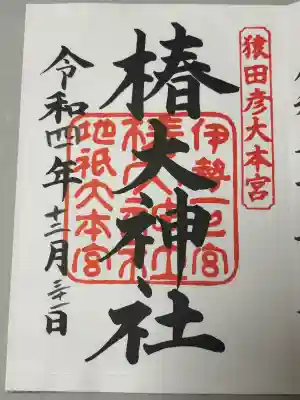 猿田彦大本宮
椿大神社
伊勢一之宮
椿大神社
地祇大本宮
令和四年十二月三十一日